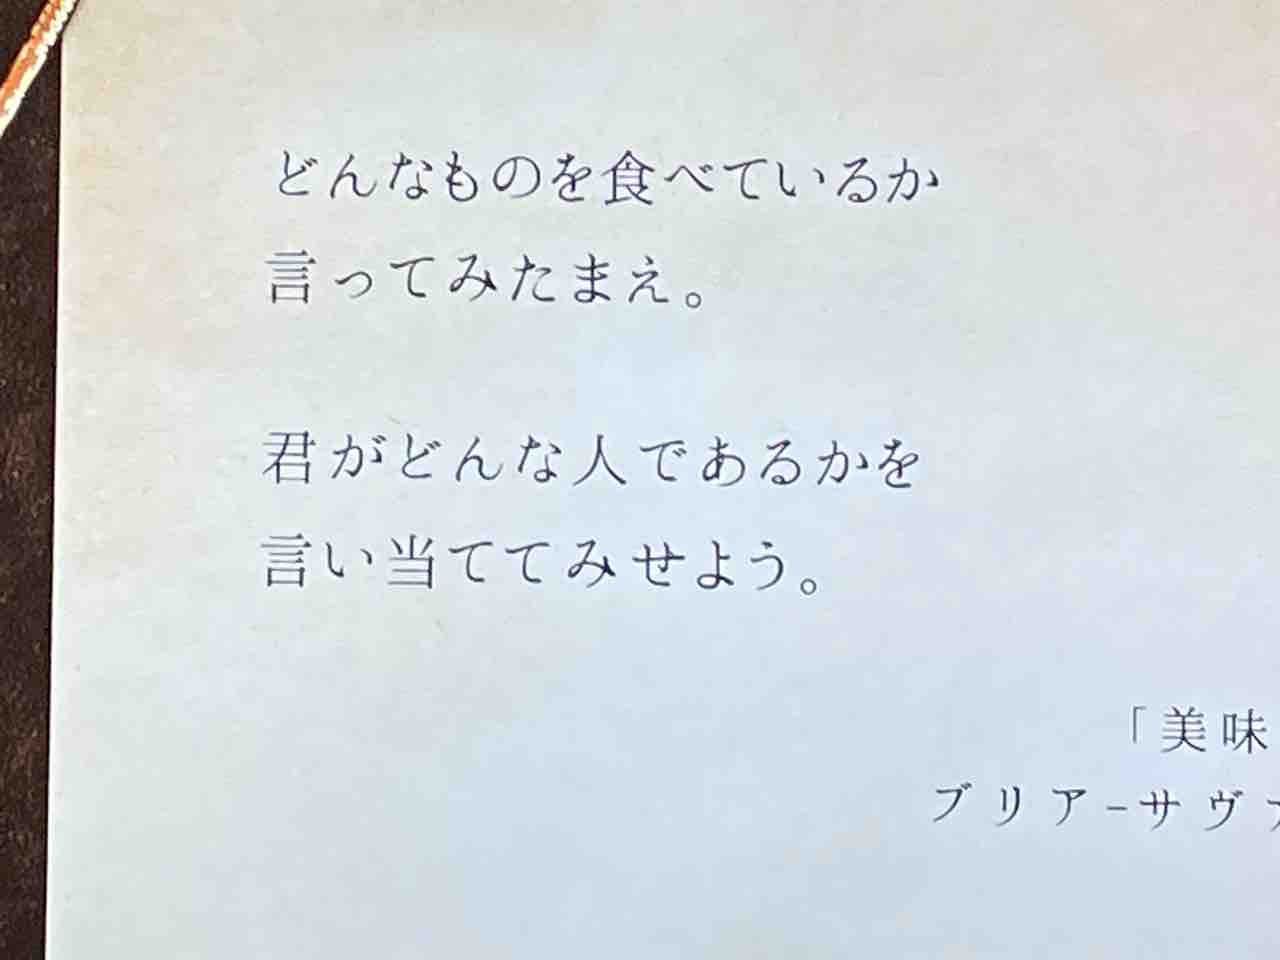 どんなものを食べているか
言ってみたまえ。
君がどんな人であるかを
言い当ててみせよう。
「美味
ブリア-サヴ